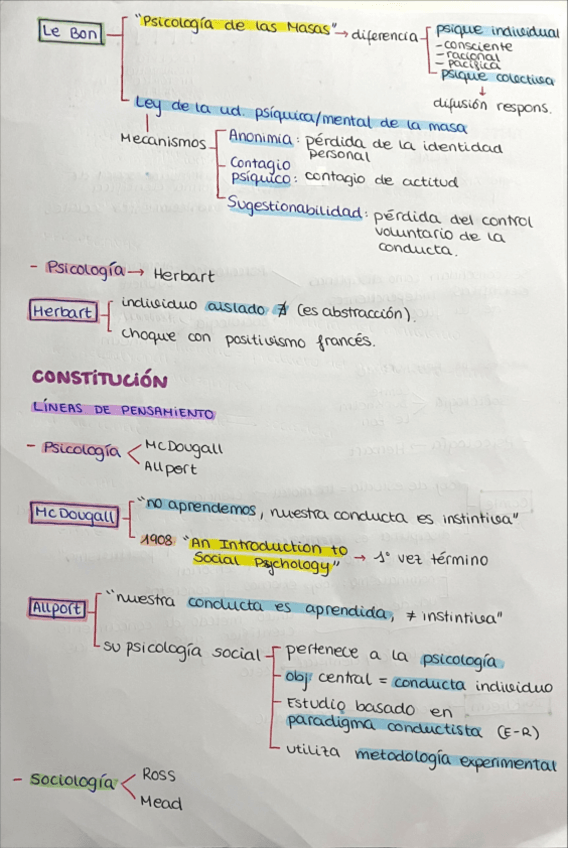 Le Bon
"Psicología de las Masas" → diferencia
psique individual
- consciente
- racional
- pacífica
psique colectiva
↓
difusión respons.
Ley de la ud. psíquica/mental de la masa
Mecanismos
Anonimia: pérdida de la identidad
personal
Contagio
psíquico: contagio de actitud
Sugestionabilidad: pérdida del control
voluntario de la
conducta.
- Psicología → Herbart
Herbart
individuo aislado ∄ (es abstracción).
choque con positivismo francés.
CONSTITUCIÓN
LÍNEAS DE PENSAMIENTO
- Psicología
McDougall
Allport
McDougall
"no aprendemos, nuestra conducta es instintiva"
1908: "An Introduction to
Social Psychology" → 1º vez término
Allport
"nuestra conducta es aprendida, ≠ instintiva"
su psicología social
pertenece a la psicología
obj central = conducta individuo
Estudio basado en
paradigma conductista (E-R)
utiliza metodología experimental
- Sociología
Ross
Mead